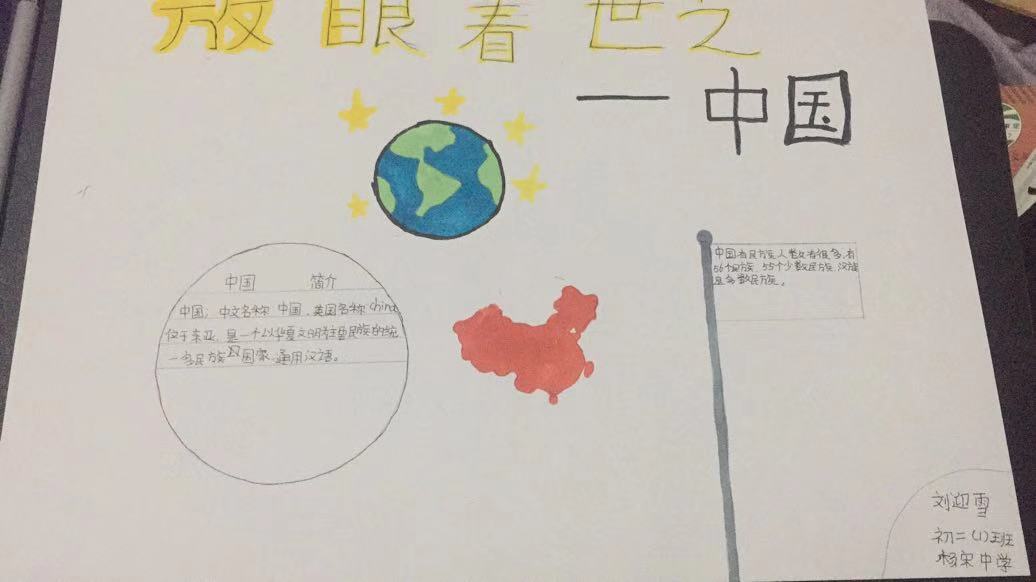 放眼看世之
— 中国
中国 简介
中国,中文名称 中国,英国名称 china
位于东亚,是一个以华夏文明主重民族的统
一多民族国家,通用汉语。
中国有民族,人数有很多,有
56个民族,55个少数民族,汉族
是多数民族。
刘迎雪
初二(1)班
杨宋中学